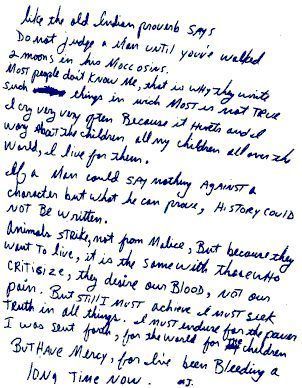 like the old Indian proverb SAYS
Do not judge a Man until you've walked
2 moons in his Moccosins.
Most people don't KNOW Me, that is why they write
such things in wich MOST is not TRUE
I cry very very often Because it Hurts and I
wory about the children all my children all over the
World, I live for them.
If a Man could SAY nothing AGAINST a
character but what he can prove, HISTORY COULD
NOT Be written.
Animals STRIKE, not from Malice, But because they
want To live, it is the same with those who
CRITISIZE, they desire our BLOOD, NOT our
pain. But Still I MUST achieve I MUST seek
Truth in all things. I must endure for the power
I was sent forth, for the world for the children
BUT HAVE Mercy, for I've been Bleeding a
LONG TIME NOW. MJ.